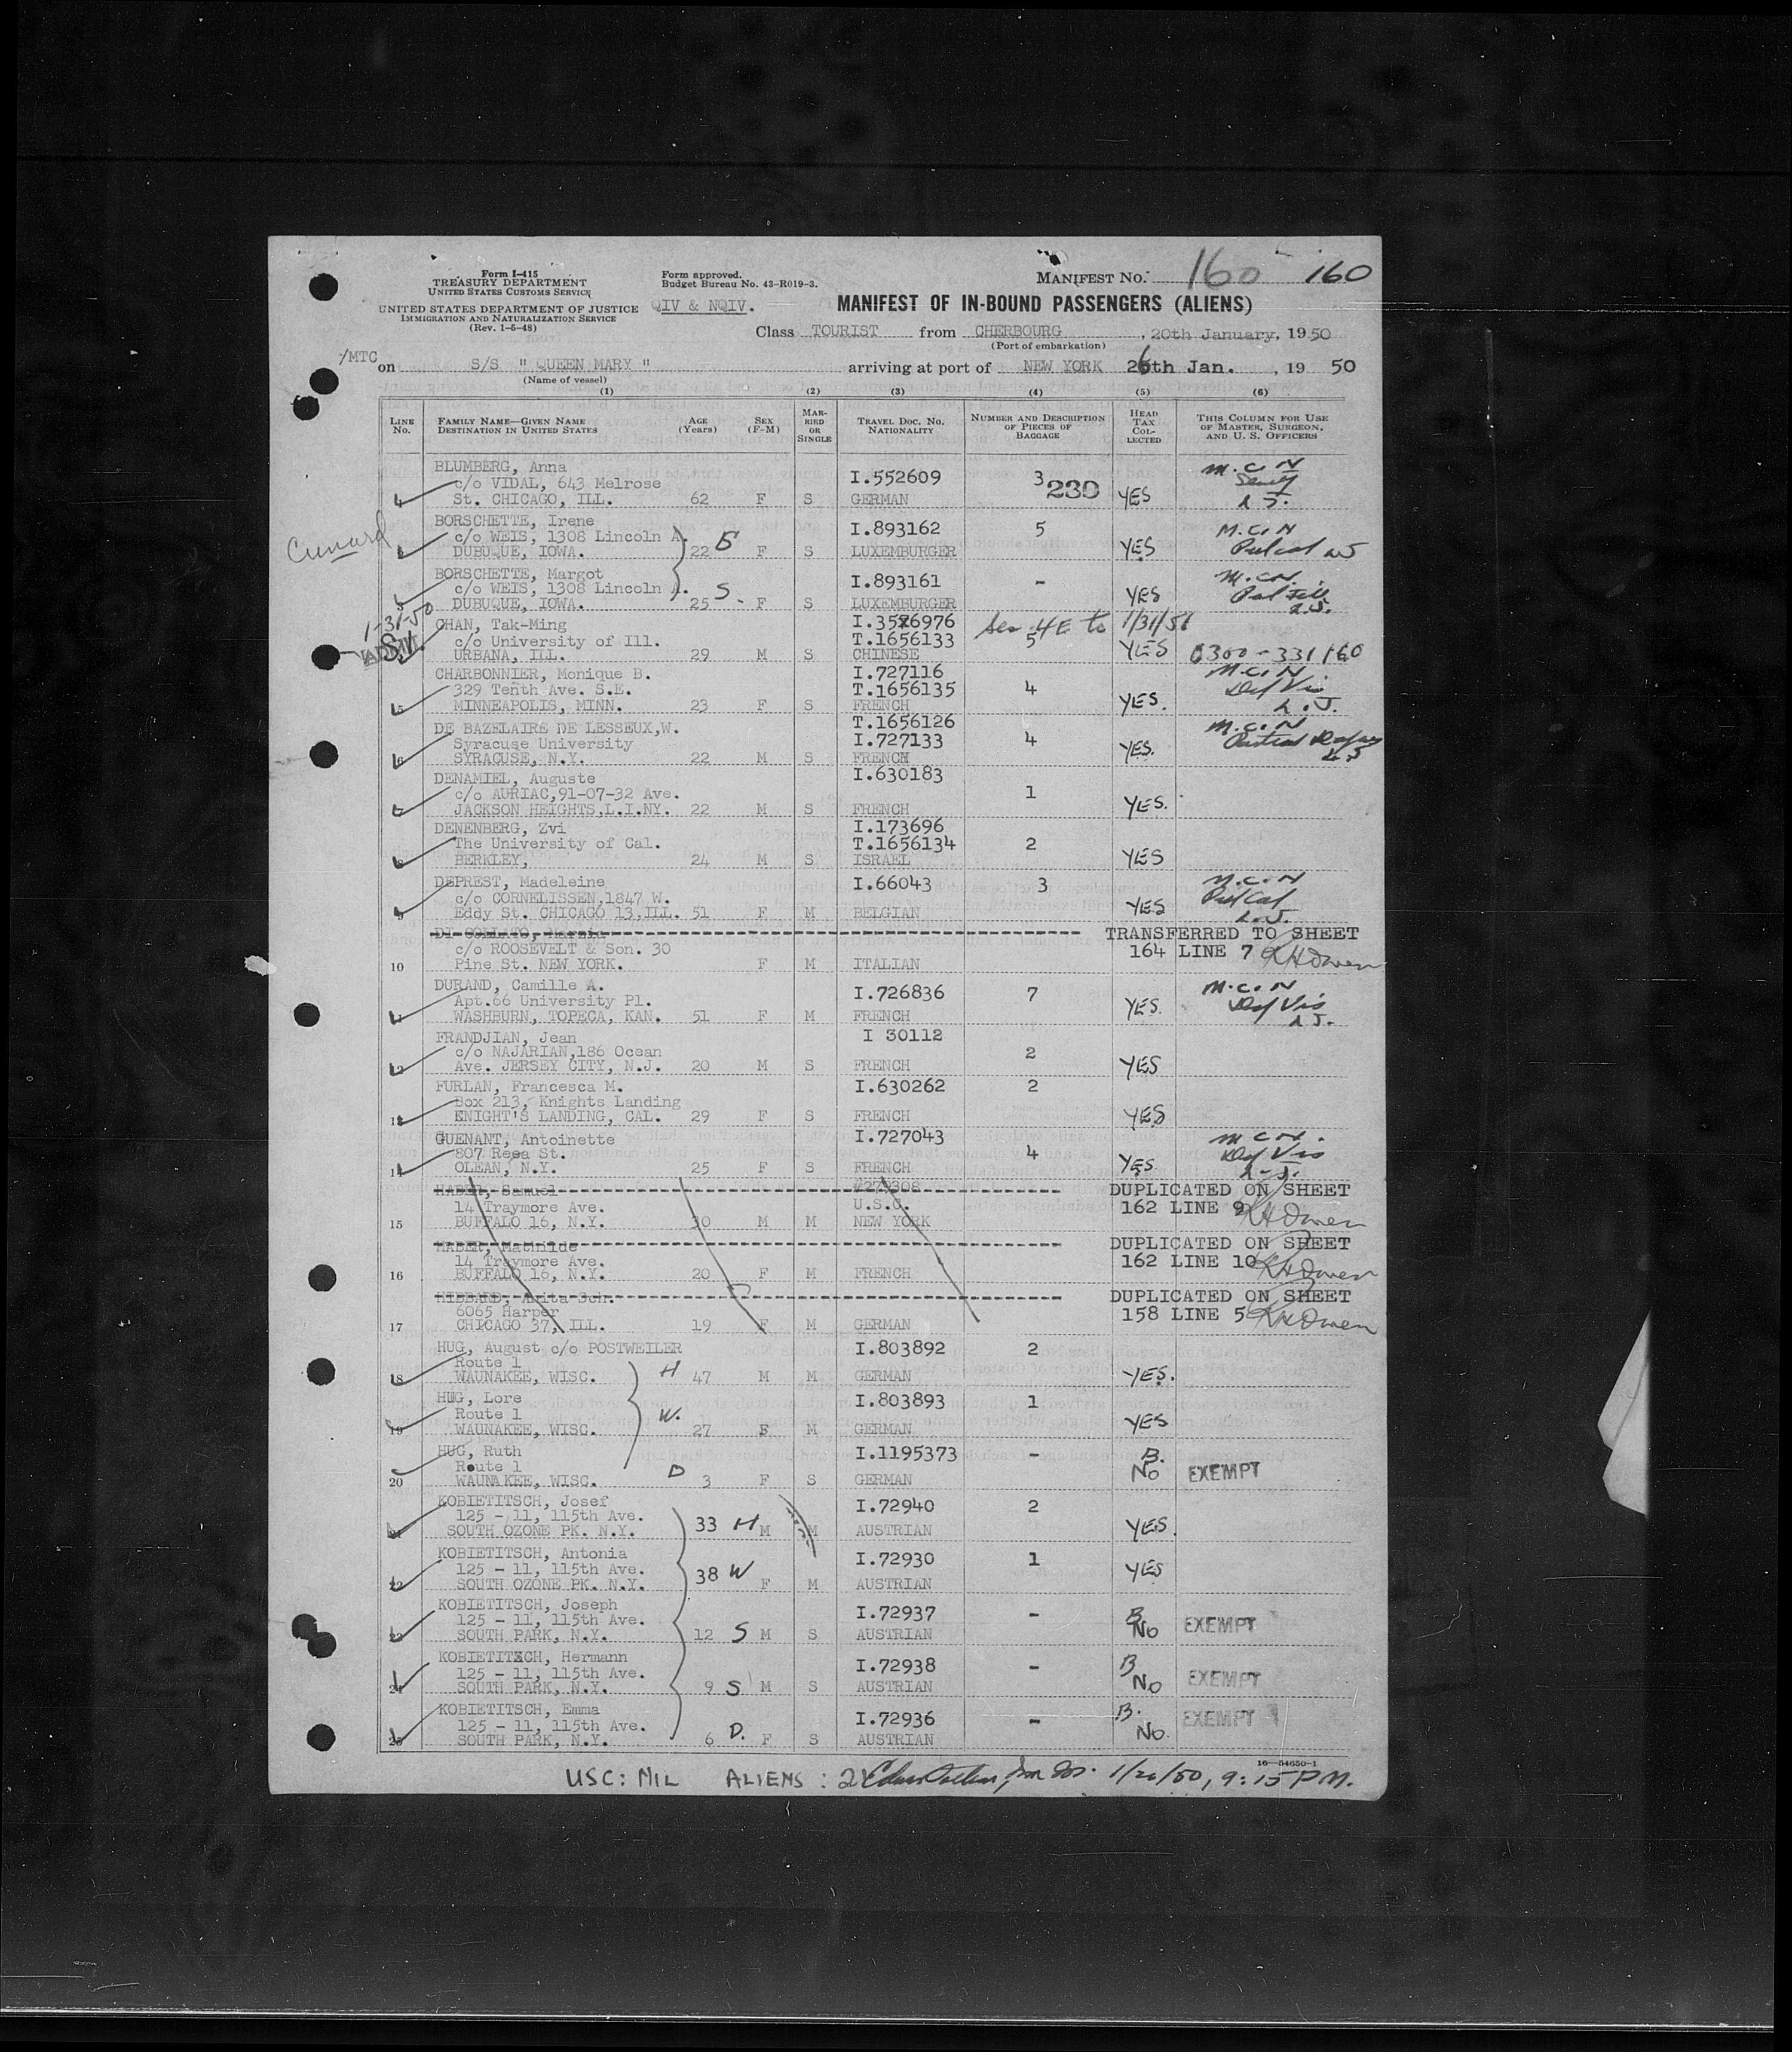 Form I-415
TREASURY DEPARTMENT
UNITED STATES CUSTOMS SERVICE
UNITED STATES DEPARTMENT OF JUSTICE
IMMIGRATION AND NATURALIZATION SERVICE
(Rev. 1-5-48)
Form approved.
Budget Bureau No. 43-R019-3.
QIV & NQIV.
MANIFEST NO. 160 160
MANIFEST OF IN-BOUND PASSENGERS (ALIENS)
Class TOURIST from CHERBOURG, 20th January, 1950
(Port of embarkation)
/MTC
on S/S " QUEEN MARY " arriving at port of NEW YORK 26th Jan., 19 50
(Name of vessel)
(1) (2) (3) (4) (5) (6)
LINE No. FAMILY NAME—GIVEN NAME DESTINATION IN UNITED STATES AGE (Years) SEX (F-M) MARRIED OR SINGLE TRAVEL DOC. NO. NATIONALITY NUMBER AND DESCRIPTION OF PIECES OF BAGGAGE HEAD TAX COLLECTED THIS COLUMN FOR USE OF MASTER, SURGEON, AND U. S. OFFICERS
BLUMBERG, Anna M.C.N
c/o VIDAL, 643 Melrose I.552609 3 230
St. CHICAGO, ILL. 62 F S GERMAN YES L.J.
Cunard
BORSCHETTE, Irene I.893162 5 M.C.N
c/o WEIS, 1308 Lincoln A. S
DUBUQUE, IOWA. 22 F S LUXEMBURGER YES
BORSCHETTE, Margot I.893161 - M.C.N.
c/o WEIS, 1308 Lincoln A. S.
DUBUQUE, IOWA. 25 F S LUXEMBURGER YES L.J.
1-31-50
S.I.
CHAN, Tak-Ming I.3576976 Sec. 4E to 1/31/51
c/o University of Ill. T.1656133 5
URBANA, ILL. 29 M S CHINESE YES 0300-331160
CHARBONNIER, Monique B. I.727116 M.C.N
329 Tenth Ave. S.E. T.1656135 4 Def Vis
MINNEAPOLIS, MINN. 23 F S FRENCH YES. L.J.
DE BAZELAIRE DE LESSEUX,W. T.1656126 M.C.N
Syracuse University I.727133 4
SYRACUSE, N.Y. 22 M S FRENCH YES. L.J
DENAMIEL, Auguste I.630183
c/o AURIAC,91-07-32 Ave. 1
JACKSON HEIGHTS,L.I.NY. 22 M S FRENCH YES.
DENENBERG, Zvi I.173696
The University of Cal. T.1656134 2
BERKLEY, 24 M S ISRAEL YES
DEPREST, Madeleine I.66043 3 M.C.N
c/o CORNELISSEN,1847 W.
Eddy St. CHICAGO 13,ILL. 51 F M BELGIAN YES L.J.
DI COLLATO, Marzia TRANSFERRED TO SHEET
c/o ROOSEVELT & Son. 30 164 LINE 7 KHOwen
10 Pine St. NEW YORK. F M ITALIAN
DURAND, Camille A. I.726836 7 M.C.N
Apt.66 University Pl. Def Vis
WASHBURN, TOPECA, KAN. 51 F M FRENCH YES. L.J.
FRANDJIAN, Jean I 30112
c/o NAJARIAN,186 Ocean 2
12 Ave. JERSEY CITY, N.J. 20 M S FRENCH YES
FURLAN, Francesca M. I.630262 2
Box 213, Knights Landing
13 KNIGHT'S LANDING, CAL. 29 F S FRENCH YES
GUENANT, Antoinette I.727043 M C N.
807 Reea St. 4 Def Vis
14 OLEAN, N.Y. 25 F S FRENCH YES L.J.
HABER, Samuel #279308 DUPLICATED ON SHEET
14 Traymore Ave. U.S.C. 162 LINE 9 KHOwen
15 BUFFALO 16, N.Y. 30 M M NEW YORK
HABER, Mathilde DUPLICATED ON SHEET
14 Traymore Ave. 162 LINE 10 KHOwen
16 BUFFALO 16, N.Y. 20 F M FRENCH
HIBBARD, Anita Sch. DUPLICATED ON SHEET
6065 Harper 158 LINE 5 KHOwen
17 CHICAGO 37, ILL. 19 F M GERMAN
HUG, August c/o POSTWEILER I.803892 2
Route 1 H
18 WAUNAKEE, WISC. 47 M M GERMAN YES.
HUG, Lore I.803893 1
Route 1 W.
19 WAUNAKEE, WISC. 27 F M GERMAN YES
HUG, Ruth I.1195373 - B.
Route 1 D No EXEMPT
20 WAUNAKEE, WISC. 3 F S GERMAN
KOBIETITSCH, Josef I.72940 2
125 - 11, 115th Ave.
21 SOUTH OZONE PK. N.Y. 33 H M M AUSTRIAN YES.
KOBIETITSCH, Antonia I.72930 1
125 - 11, 115th Ave.
22 SOUTH OZONE PK. N.Y. 38 W F M AUSTRIAN YES
KOBIETITSCH, Joseph I.72937 - B
125 - 11, 115th Ave. No EXEMPT
23 SOUTH PARK, N.Y. 12 S M S AUSTRIAN
KOBIETITSCH, Hermann I.72938 - B
125 - 11, 115th Ave. No EXEMPT
24 SOUTH PARK, N.Y. 9 S M S AUSTRIAN
KOBIETITSCH, Emma I.72936 - B. EXEMPT
125 - 11, 115th Ave.
25 SOUTH PARK, N.Y. 6 D. F S AUSTRIAN No.
16—54650-1
USC: NIL ALIENS: 21 1/26/50, 9:15 PM.